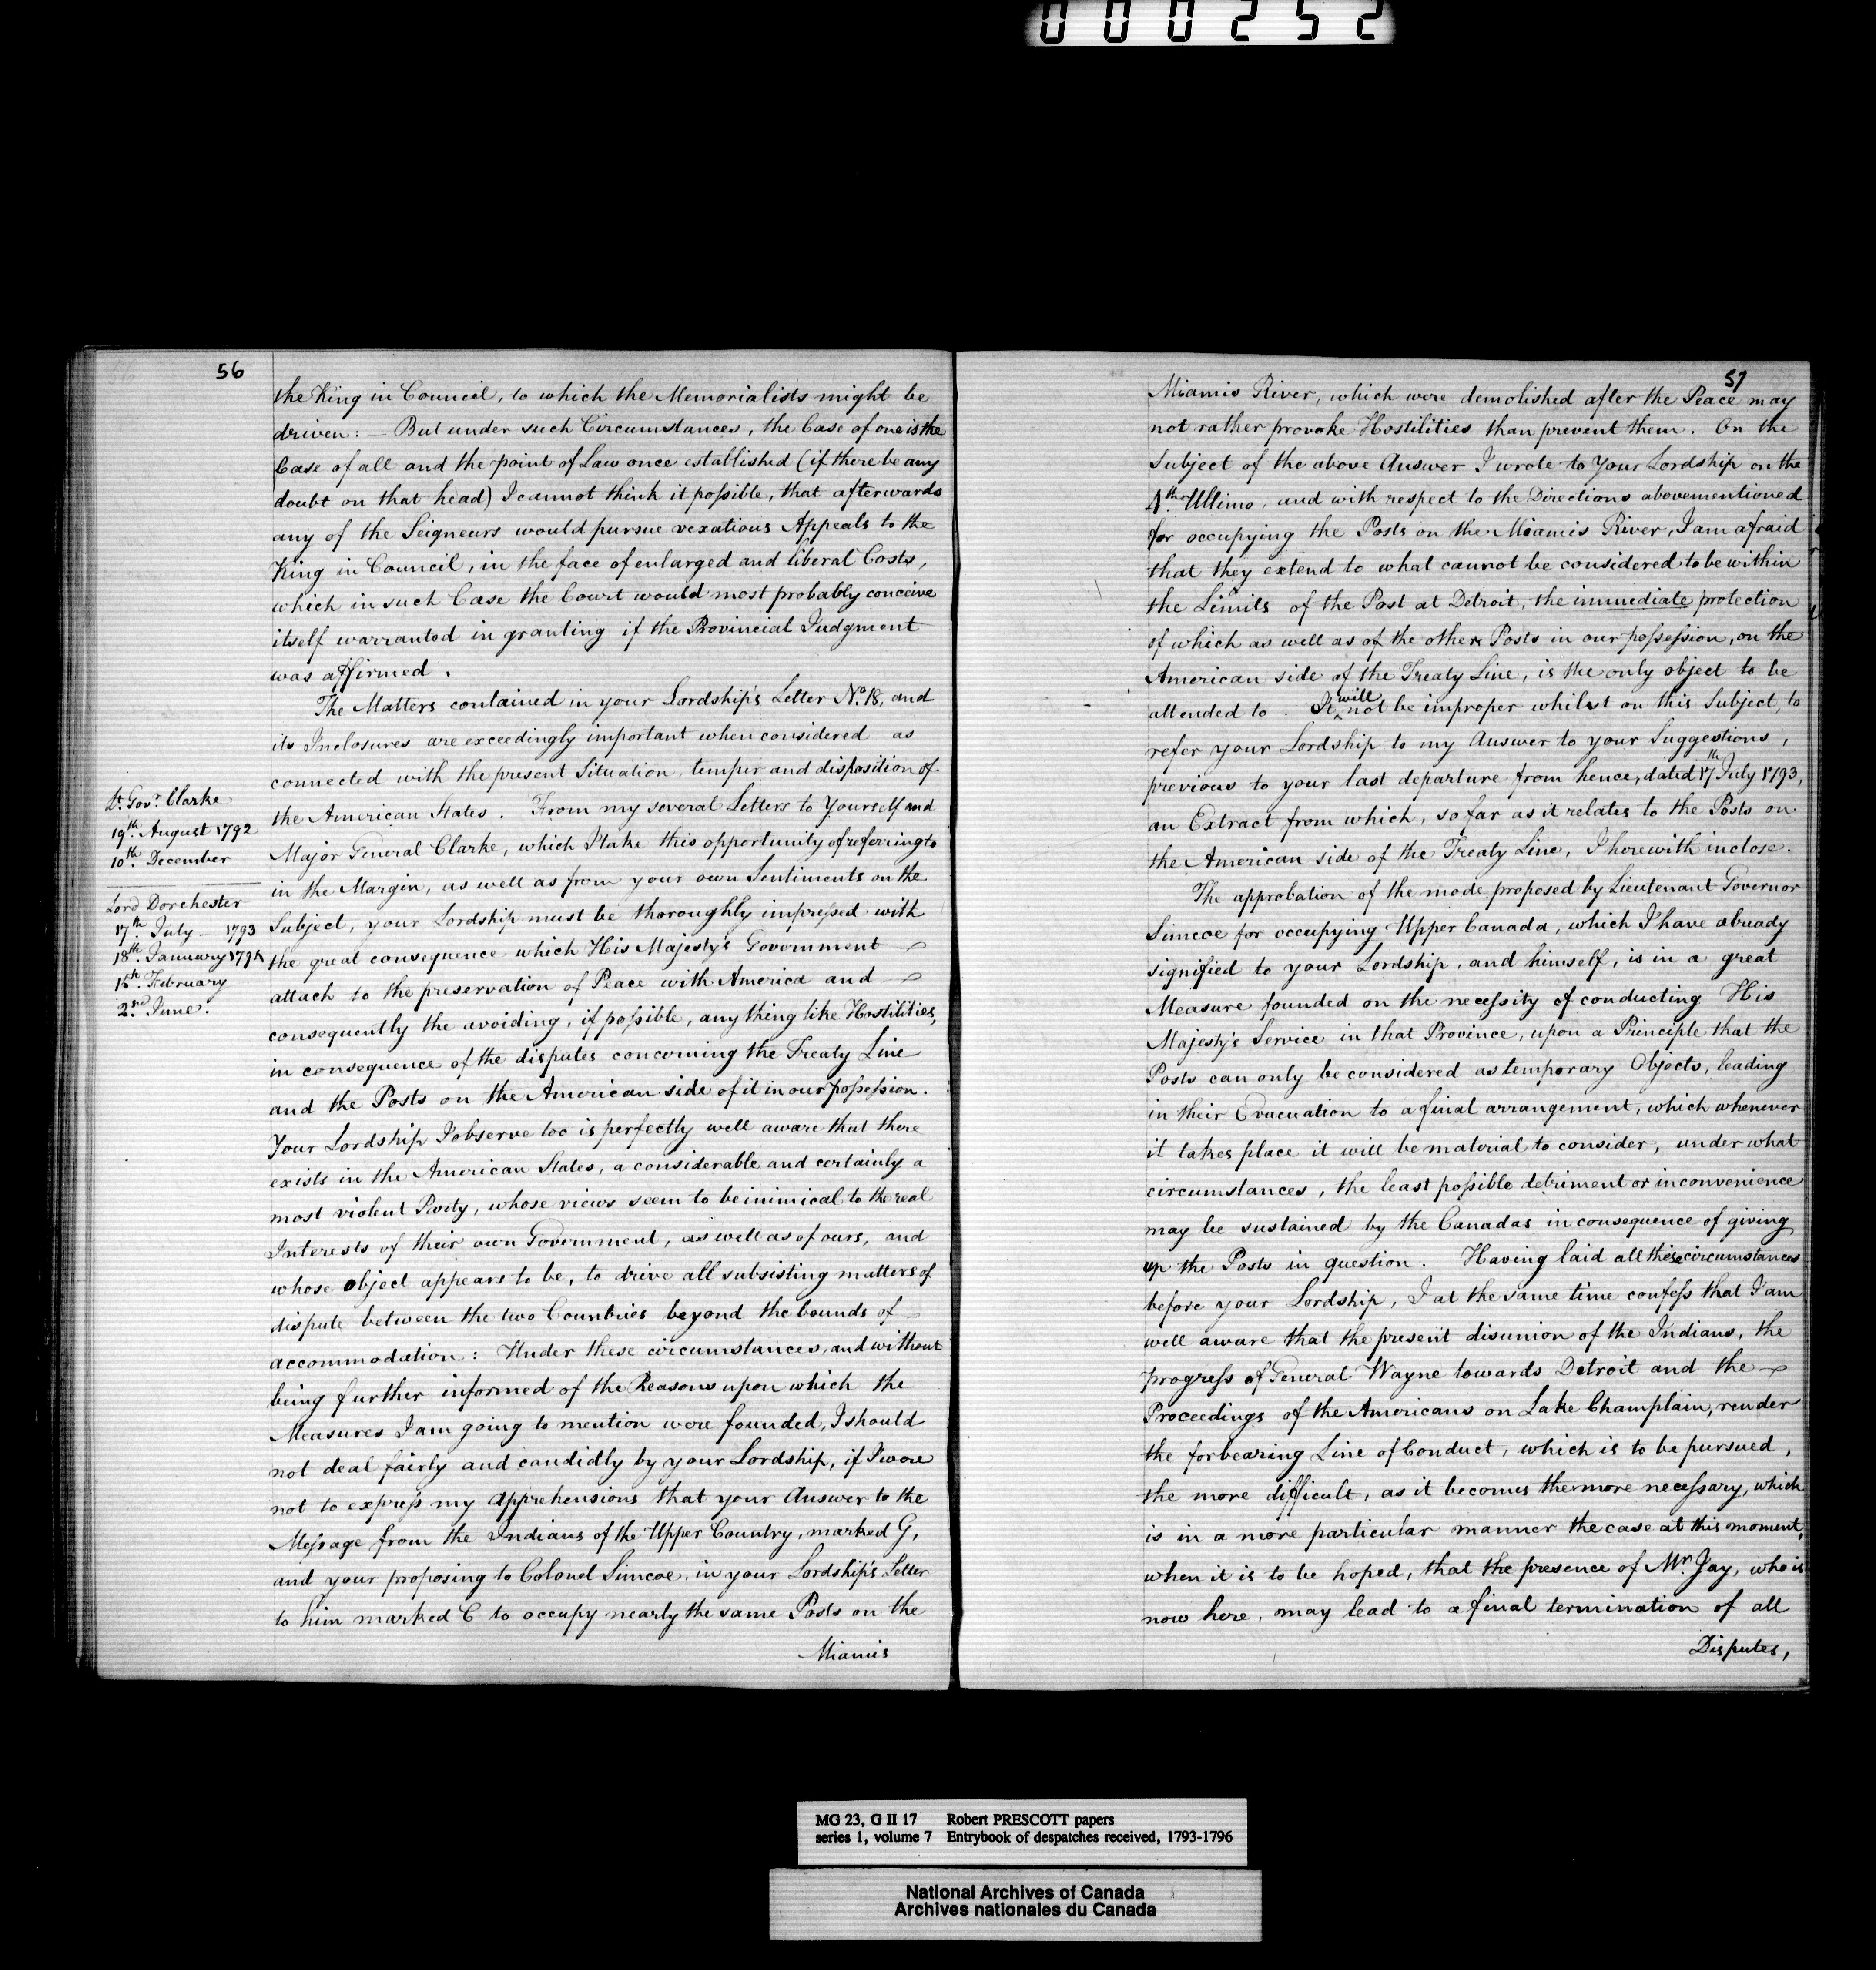 000252
56
the King in Council, to which the Memorialists might be
driven: — But under such Circumstances, the Case of one is the
Case of all and the point of Law once established (if there be any
doubt on that head) I cannot think it possible, that afterwards
any of the Seigneurs would pursue vexatious Appeals to the
King in Council, in the face of enlarged and liberal Costs,
which in such Case the Court would most probably conceive
itself warranted in granting if the Provincial Judgment
was affirmed.
The Matters contained in your Lordship's Letter No. 18, and
its Inclosures are exceedingly important when considered as
connected with the present Situation, temper and disposition of
the American States. From my several Letters to Yourself and
Major General Clarke, which I take this opportunity of referring to
in the Margin, as well as from your own Sentiments on the
Subject, your Lordship must be thoroughly impressed with
the great consequence which His Majesty's Government
attach to the preservation of Peace with America and
consequently the avoiding, if possible, any thing like Hostilities,
in consequence of the disputes concerning the Treaty Line
and the Posts on the American side of it in our possession.
Your Lordship I observe too is perfectly well aware that there
exists in the American States, a considerable and certainly a
most violent Party, whose views seem to be inimical to the real
Interests of their own Government, as well as of ours, and
whose object appears to be, to drive all subsisting matters of
dispute between the two Countries beyond the bounds of
accommodation: Under these circumstances, and without
being further informed of the Reasons upon which the
Measures I am going to mention were founded, I should
not deal fairly and candidly by your Lordship, if I were
not to express my Apprehensions that your Answer to the
Message from the Indians of the Upper Country, marked G,
and your proposing to Colonel Simcoe, in your Lordship's Letter
to him marked C to occupy nearly the same Posts on the
Miamis
Lt. Govr. Clarke
19th. August 1792
10th. December
Lord Dorchester
17th. July — 1793
18th. January 1794
15th. February
2nd. June.
57
Miamis River, which were demolished after the Peace may
not rather provoke Hostilities than prevent them. On the
Subject of the above Answer I wrote to Your Lordship on the
4th. Ultimo, and with respect to the Directions abovementioned
for occupying the Posts on the Miamis River, I am afraid
that they extend to what cannot be considered to be within
the Limits of the Post at Detroit, the immediate protection
of which as well as of the other Posts in our possession, on the
American side of the Treaty Line, is the only object to be
attended to. It will not be improper whilst on this Subject, to
refer your Lordship to my Answer to your Suggestions,
previous to your last departure from hence, dated 17th July 1793,
an Extract from which, so far as it relates to the Posts on
the American side of the Treaty Line, I herewith inclose.
The approbation of the mode proposed by Lieutenant Governor
Simcoe for occupying Upper Canada, which I have already
signified to your Lordship, and himself, is in a great
Measure founded on the necessity of conducting His
Majesty's Service in that Province, upon a Principle that the
Posts can only be considered as temporary Objects, leading
in their Evacuation to a final arrangement, which whenever
it takes place it will be material to consider, under what
circumstances, the least possible detriment or inconvenience
may be sustained by the Canadas in consequence of giving
up the Posts in question. Having laid all these circumstances
before your Lordship, I at the same time confess that I am
well aware that the present disunion of the Indians, the
progress of General Wayne towards Detroit and the
Proceedings of the Americans on Lake Champlain, render
the forbearing Line of Conduct, which is to be pursued,
the more difficult, as it becomes the more necessary, which
is in a more particular manner the case at this moment,
when it is to be hoped, that the presence of Mr. Jay, who is
now here, may lead to a final termination of all
Disputes,
MG 23, G II 17 Robert PRESCOTT papers
series 1, volume 7 Entrybook of despatches received, 1793-1796
National Archives of Canada
Archives nationales du Canada